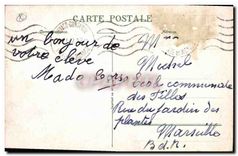 CARTE POSTALE
un bonjour de
votre élève
Mado
Mme
Michel
Ecole communale
des Filles
Rue du Jardin des
plantes
Marseille
B.d.R.